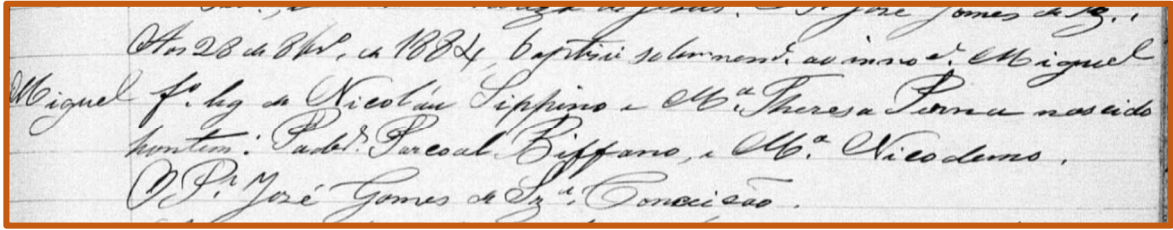 José Gomes de Sz.ª
Aos 28 de 8br.º, de 1884, baptisei solemnem.e ao innoc.e Miguel
Miguel f.º leg de Nicoláu Sippino e M.ª Theresa Perna nascido
hontem: Padr.s Pascoal Biffano, e M.ª Nicodemo.
O P.e José Gomes de Sz.ª Conceição.